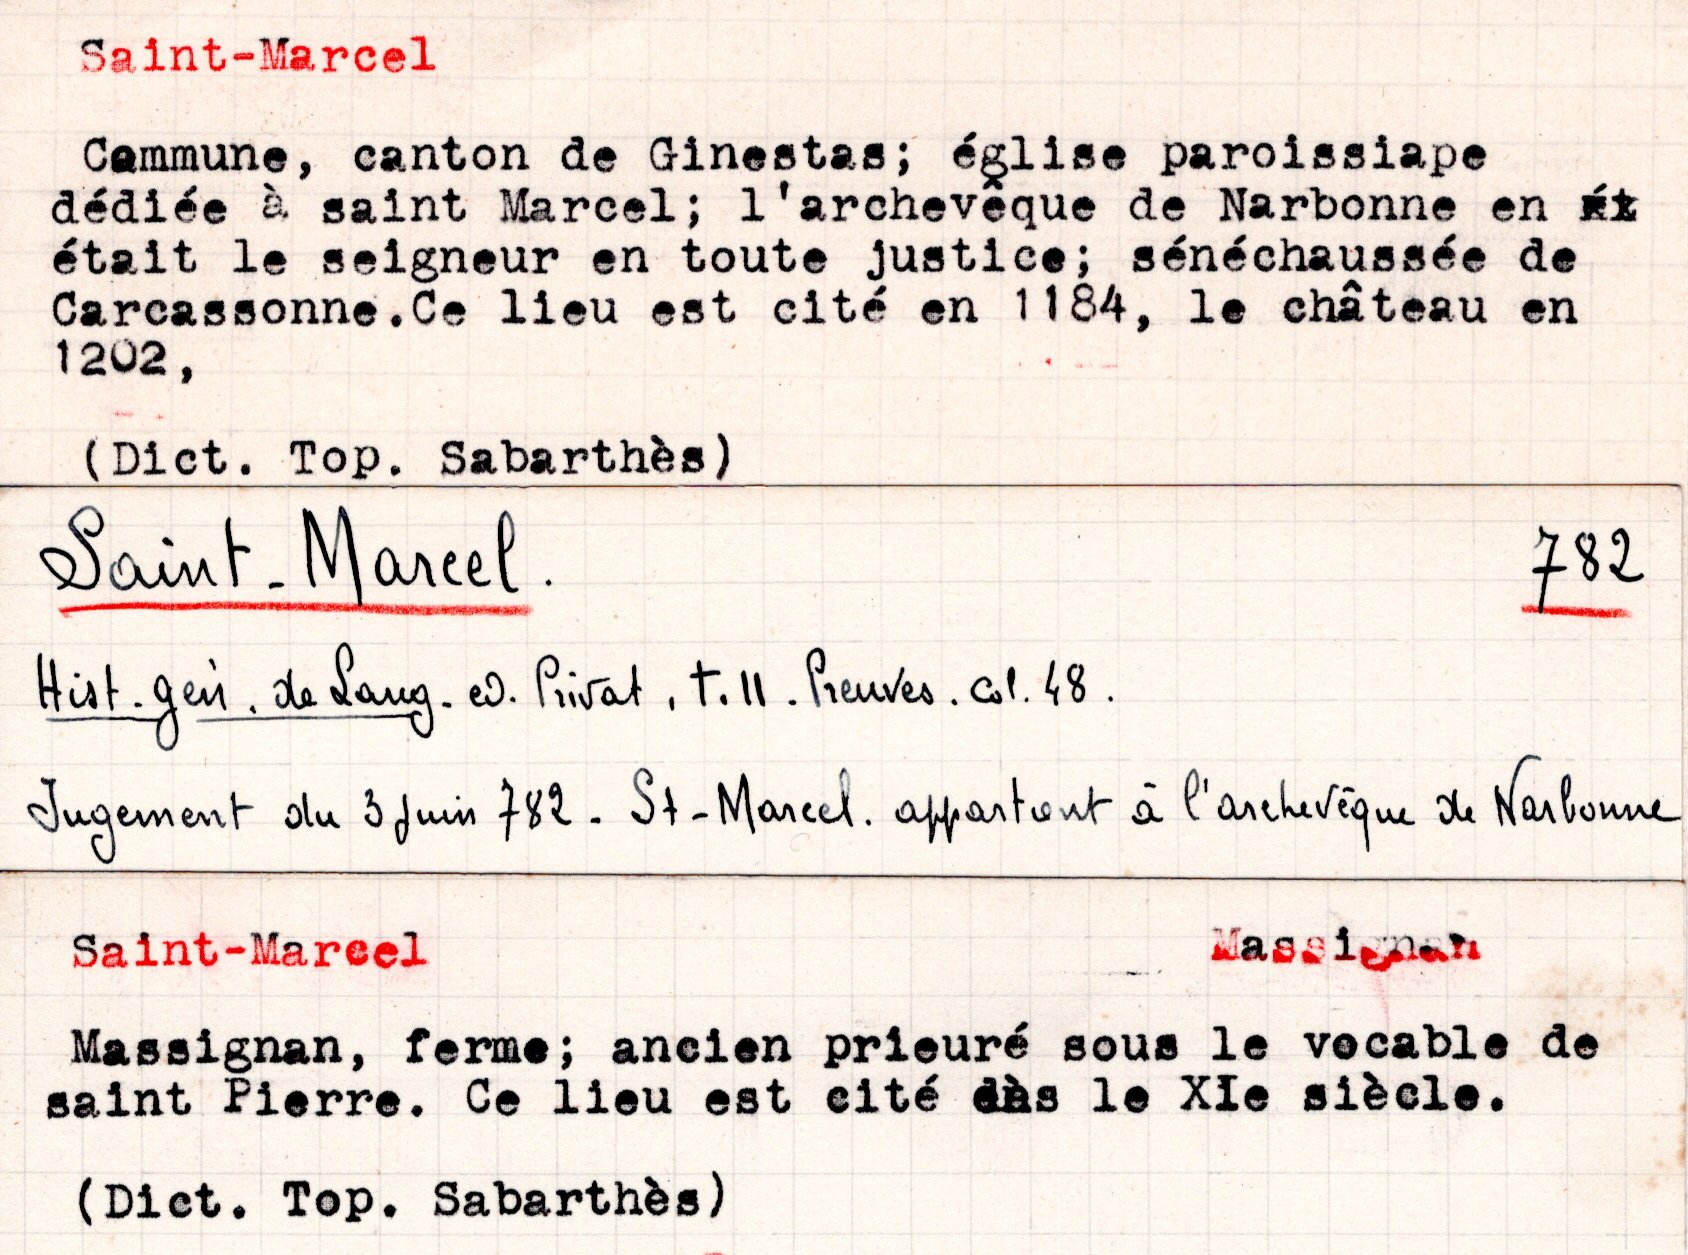 Saint-Marcel
Commune, canton de Ginestas; église paroissiape
dédiée à saint Marcel; l'archevêque de Narbonne en
était le seigneur en toute justice; sénéchaussée de
Carcassonne.Ce lieu est cité en 1184, le château en
1202,
(Dict. Top. Sabarthès)
Saint-Marcel. 782
Hist. gén. de Lang. ed. Privat, t. II. Preuves. col. 48.
Jugement du 3 juin 782 - St-Marcel. appartient à l'archevêque de Narbonne
Saint-Marcel Massignan
Massignan, ferme; ancien prieuré sous le vocable de
saint Pierre. Ce lieu est cité dès le XIe siècle.
(Dict. Top. Sabarthès)